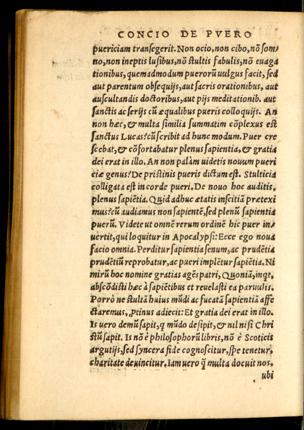 CONCIO DE PVERO
puericiam transegerit. Non ocio, non cibo, nõ som
no, non ineptis lusibus, nõ stultis fabulis, nõ euaga
tionibus, quemadmodum puerorũ uulgus facit, sed
aut parentum obsequijs, aut sacris orationibus, aut
auscultandis doctoribus, aut pijs meditationib. aut
sanctis ac serijs cũ æqualibus pueris colloquijs. An
non hæc, & multa similia summatim cõplexus est
sanctus Lucas? cũ scribit ad hunc modum. Puer cre
scebat, & cõfortabatur plenus sapientia, & gratia
dei erat in illo. An non palàm uidetis nouum pueri
ciæ genus? De pristinis pueris dictum est. Stulticia
colligata est in corde pueri. De nouo hoc auditis,
plenus sapiẽtia. Quid adhuc ætatis inscitiã prætexi
mus? cũ audiamus non sapientẽ, sed plenũ sapientia
puerũ. Videte ut omnẽ rerum ordinẽ hic puer in
uertit, qui loquitur in Apocalypsi: Ecce ego noua
facio omnia. Perditur sapientia senum, ac prudẽtia
prudẽtiũ reprobatur, ac pueri implẽtur sapiẽtia. Ni
mirũ hoc nomine gratias agẽs patri, Quoniã, inqt,
abscõdisti hæc à sapiẽtibus et reuelasti ea paruulis.
Porrò ne stultã huius mũdi ac fucatã sapientiã affe
ctaremus, ,ptinus adiecit: Et gratia dei erat in illo.
Is uero demũ sapit, q mũdo desipit, & nil nisi Chri
stũ sapit. Is nõ è philosophorũ libris, nõ è Scoticis
argutijs, sed syncera fide cognoscitur, spe tenetur,
charitate deuincitur. Iam uero q̃ multa docuit nos,
ubi